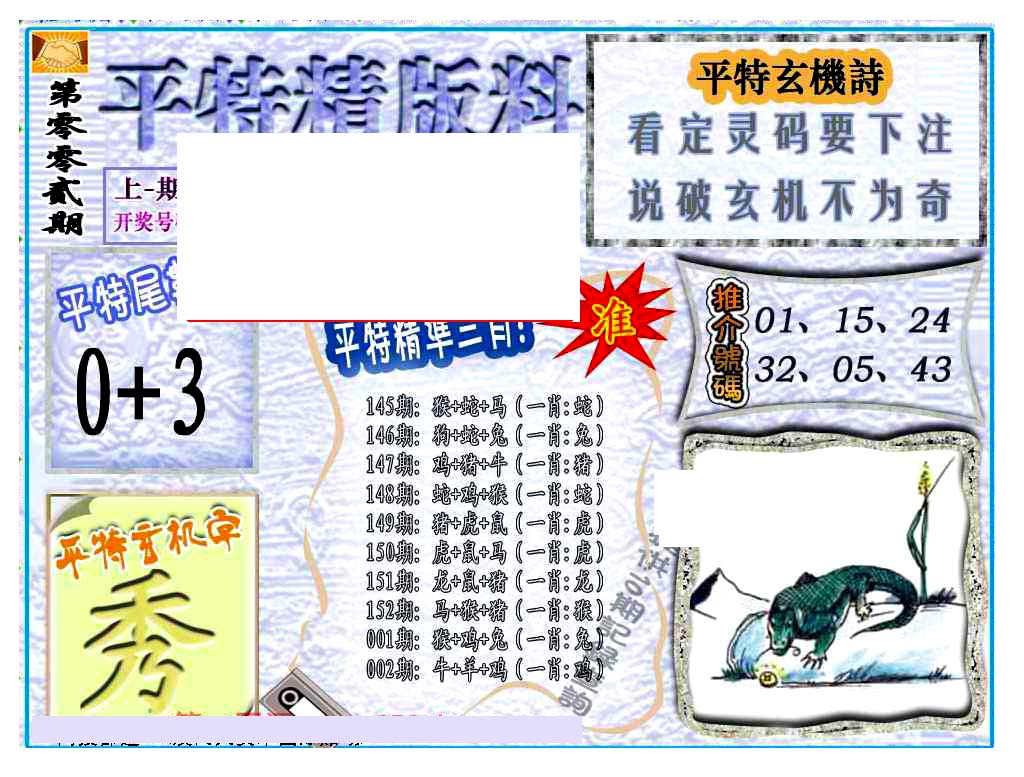 第零零贰期
平特精版料
上-期
开奖号
平特玄機詩
看定灵码要下注
说破玄机不为奇
平特尾
0+3
平特精準三肖!
准
推介號碼
01、15、24
32、05、43
145期: 猴+蛇+马(一肖:蛇)
146期: 狗+蛇+兔(一肖:兔)
147期: 鸡+猪+牛(一肖:猪)
148期: 蛇+鸡+猴(一肖:蛇)
149期: 猪+虎+鼠(一肖:虎)
150期: 虎+鼠+马(一肖:虎)
151期: 龙+鼠+猪(一肖:龙)
152期: 马+猴+猪(一肖:猴)
001期: 猴+鸡+兔(一肖:兔)
002期: 牛+羊+鸡(一肖:鸡)
平特玄机字
秀